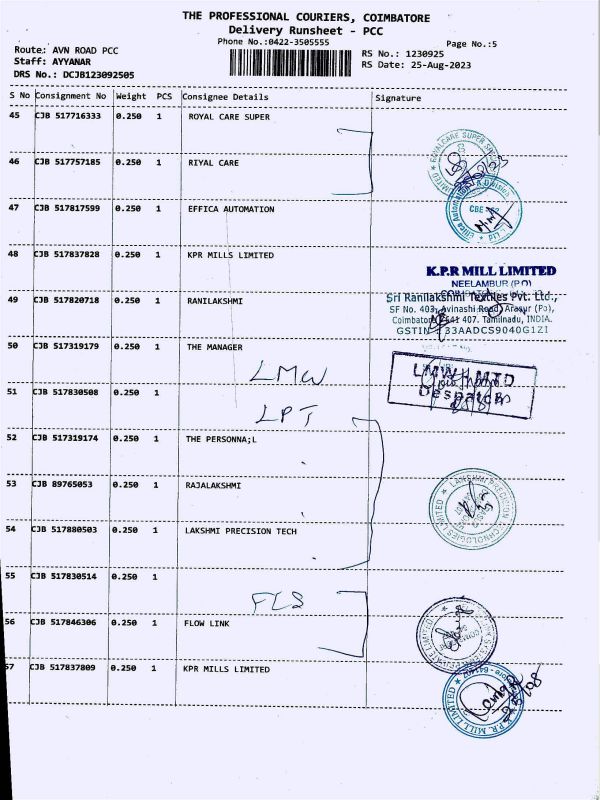 THE PROFESSIONAL COURIERS, COIMBATORE
Delivery Runsheet - PCC
Phone No.:0422-3505555
Page No.:5
Route: AVN ROAD PCC
Staff: AYYANAR
DRS No.: DCJB123092505
RS No.: 1230925
RS Date: 25-Aug-2023
S No Consignment No Weight PCS Consignee Details Signature
45 CJB 517716333 0.250 1 ROYAL CARE SUPER
46 CJB 517757185 0.250 1 RIYAL CARE
47 CJB 517817599 0.250 1 EFFICA AUTOMATION
48 CJB 517837828 0.250 1 KPR MILLS LIMITED
K.P.R MILL LIMITED
NEELAMBUR (P.O)
49 CJB 517820718 0.250 1 RANILAKSHMI
Sri Ranilakshmi Textiles Pvt. Ltd.,
SF No. 403, Avinashi Road, Arasur (Po),
Coimbatore 641 407. Tamilnadu, INDIA.
GSTIN : 33AADCS9040G1ZI
50 CJB 517319179 0.250 1 THE MANAGER
LMW
LMW - MTD
Despatch
51 CJB 517830508 0.250 1
LPT
52 CJB 517319174 0.250 1 THE PERSONNA;L
53 CJB 89765053 0.250 1 RAJALAKSHMI
LAKSHMI PRECISION TECHNOLOGIES LIMITED
54 CJB 517880503 0.250 1 LAKSHMI PRECISION TECH
55 CJB 517830514 0.250 1
FLS
56 CJB 517846306 0.250 1 FLOW LINK
57 CJB 517837809 0.250 1 KPR MILLS LIMITED
K.P.R. MILL LIMITED